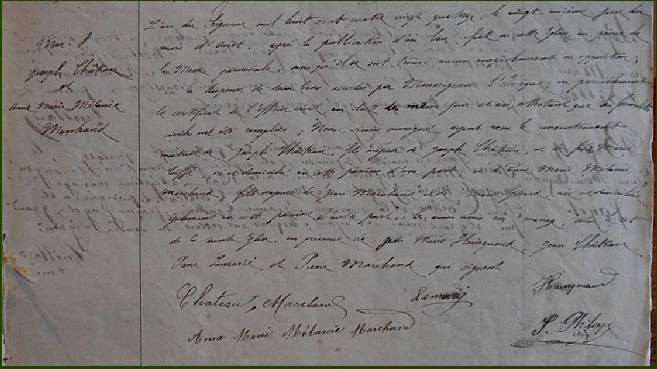 Mar. 8
Joseph Château
et
Anne Marie Mélanie
Marchand
L'an du Seigneur mil huit cent quatre vingt quatorze, le vingt unième jour du
mois d'Août, après la publication d'un ban, fait en cette église au prône de
la Messe paroissiale, ainsi qu'il ne s'est trouvé aucun empêchement ni opposition;
vu la dispense de deux bans accordée par Monseigneur l'Evêque,
le certificat de l'officier civil, en date du même jour et an, attestant que les formalités
civiles ont été remplies; Nous, vicaire soussigné, ayant reçu le consentement
mutuel de Joseph Château, fils mineur de Joseph Château, et de Marie
né et domicilié en cette paroisse d'une part; et d'Anne Marie Mélanie
Marchand, fille de Jean Marchand et de née et domiciliée
également en cette paroisse d'autre part; les avons unis en mariage, selon le rit
de la sainte église, en présence de Jean Marie Hainguaud, Jean Château
Pierre Lemarié et Pierre Marchand qui signent
Chateau, Marchand Lemarié Hainguaud
Anne Marie Mélanie Marchand S. Philippe